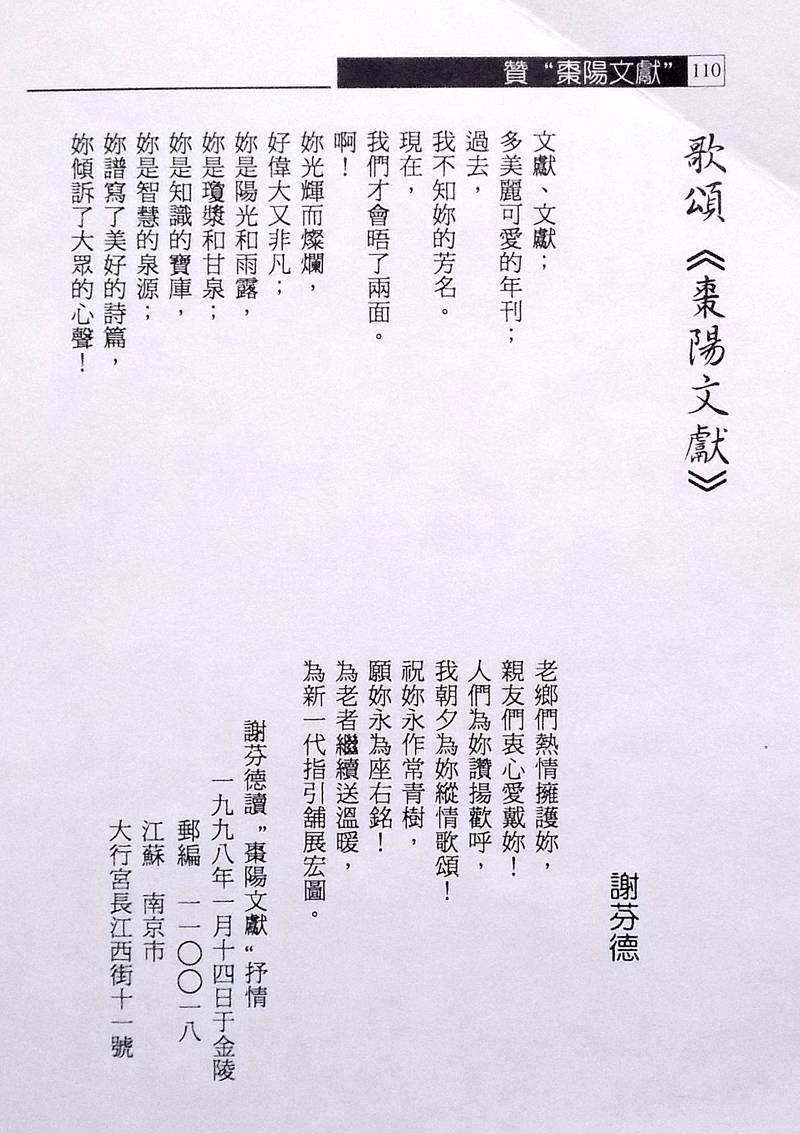 贊“棗陽文獻” 110
歌頌《棗陽文獻》
謝芬德
文獻、文獻；
多美麗可愛的年刊；
過去，
我不知妳的芳名。
現在，
我們才會晤了兩面。
啊！
妳光輝而燦爛，
好偉大又非凡；
妳是陽光和雨露，
妳是瓊漿和甘泉；
妳是知識的寶庫，
妳是智慧的泉源；
妳譜寫了美好的詩篇，
妳傾訴了大眾的心聲！
老鄉們熱情擁護妳，
親友們衷心愛戴妳！
人們為妳讚揚歡呼，
我朝夕為妳縱情歌頌！
祝妳永作常青樹，
願妳永為座右銘！
為老者繼續送溫暖，
為新一代指引舖展宏圖。
謝芬德讀〝棗陽文獻〝抒情
一九九八年一月十四日于金陵
郵編 一一〇〇一八
江蘇 南京市
大行宮長江西街十一號